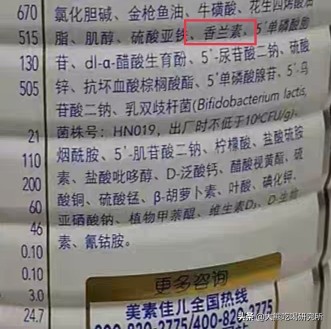 670
515
130
15
21
105
500
60
46
0.10
0.10
3.0
24.7
氯化胆碱、金枪鱼油、牛磺酸、花生四烯酸油
脂、肌醇、硫酸亚铁、香兰素、5'单磷酸腺
苷、dl-α-醋酸生育酚、5'-尿苷酸二钠、硫酸
锌、抗坏血酸棕榈酸酯、5'单磷酸腺苷、5'-鸟
苷酸二钠、乳双歧杆菌(Bifidobacterium lactis,
菌株号:HN019,出厂时不低于10⁶CFU/g)、
烟酰胺、5'-肌苷酸二钠、柠檬酸、盐酸硫胺
素、盐酸吡哆醇、D-泛酸钙、醋酸视黄酯、硫
酸铜、硫酸锰、β-胡萝卜素、叶酸、碘化钾、
亚硒酸钠、植物甲萘醌、维生素D₃、D-生物
素、氰钴胺。
更多咨询
美素佳儿全国热线
400-820-3775/400-829-3775
头条@大熊吃喝研究所